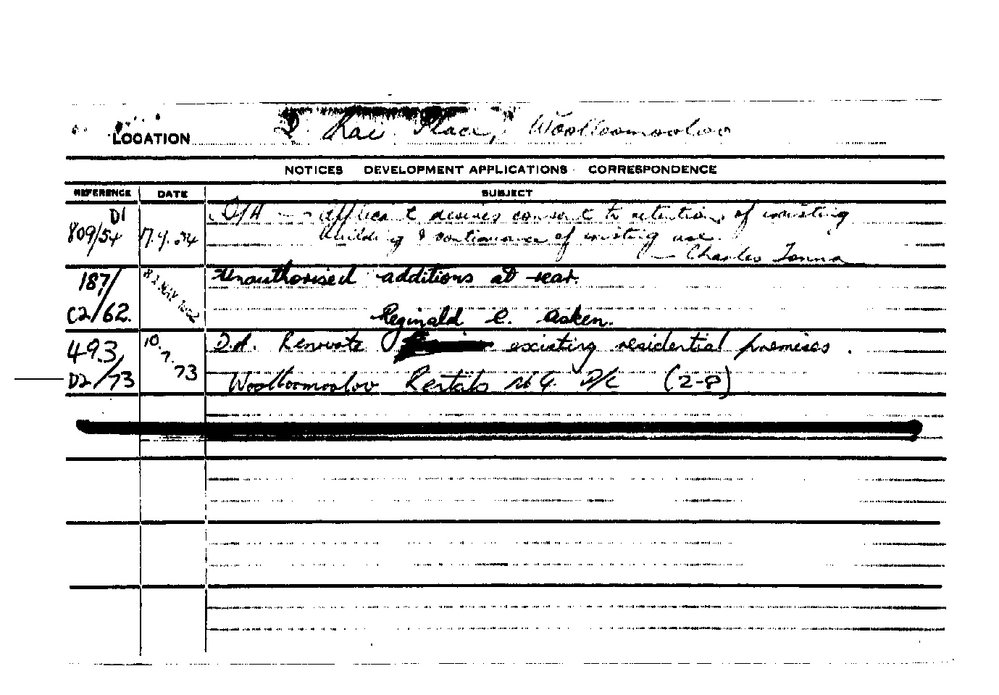 LOCATION 2 Rae Place, Woolloomooloo
NOTICES DEVELOPMENT APPLICATIONS CORRESPONDENCE
REFERENCE DATE SUBJECT
D1 D/A - Applicant desires consent to retention of existing
809/54 17.9.54 building & continuance of existing use.
Charles
187/ Unauthorised additions at rear.
C2/62. Reginald C. Asken.
493/ 10.7.73 D.A. Renovate existing residential premises.
D2/73 Woolloomooloo Rentals No 4. P/L (2-8)